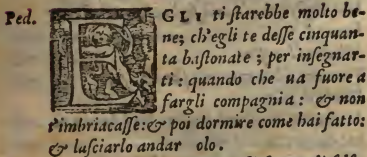 Ped. EGLI ti ſtarebbe molto be-
ne; ch'egli te deſſe cinquan-
ta baſtonate ; per inſegnar-
ti: quando che ua fuore a
fargli compagnia: & non
t'imbriacaſſe:& poi dormire come hai fatto:
& laſciarlo andar olo.